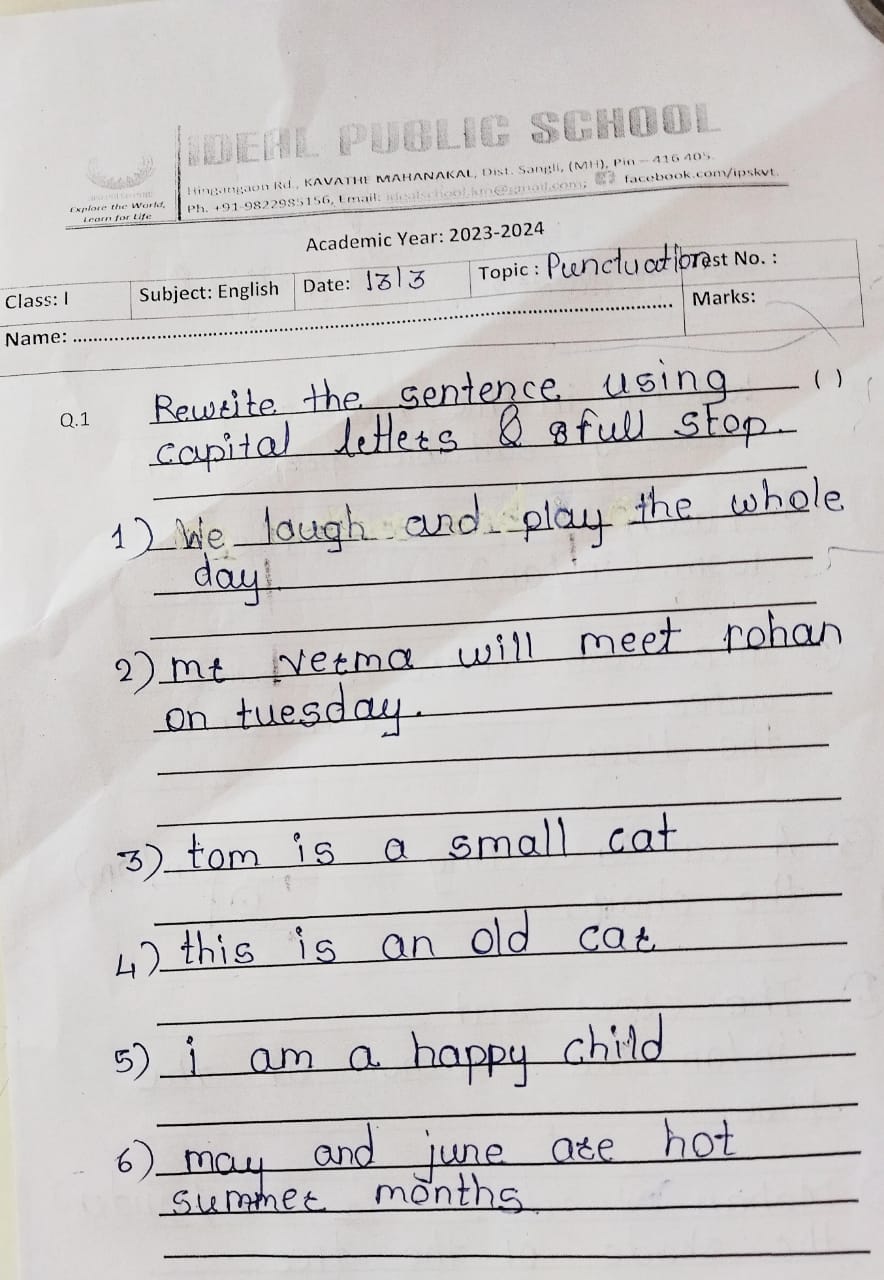 IDEAL PUBLIC SCHOOL
Hingangaon Rd., KAVATHE MAHANAKAL, Dist. Sangli, (MH), Pin – 416 405.
Explore the World,
Learn for Life
Ph. +91-9822985156, Email: idealschool.km@gmail.com; facebook.com/ipskvt.
Academic Year: 2023-2024
Class: I Subject: English Date: 13/3 Topic : Punctuation Test No. :
Name: Marks:
Q.1 Rewrite the sentence using ( )
capital letters & full stop.
1) We laugh and play the whole
day
2) mr verma will meet rohan
on tuesday.
3) tom is a small cat
4) this is an old cat
5) i am a happy child
6) may and june are hot
summer months